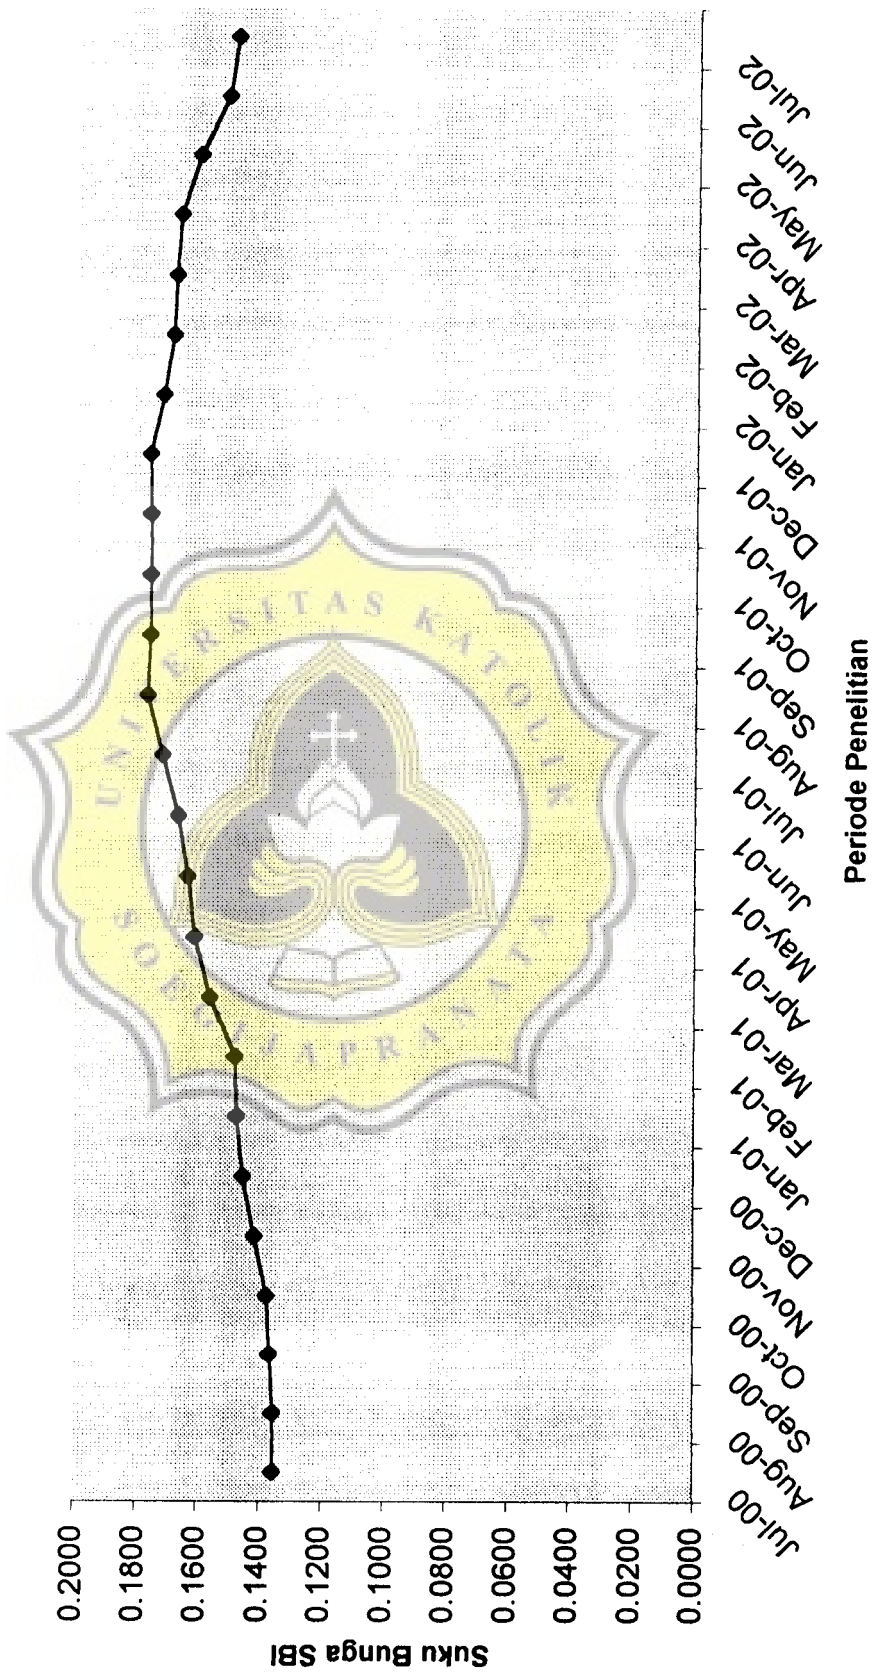 Suku Bunga SBI
0.2000
0.1800
0.1600
0.1400
0.1200
0.1000
0.0800
0.0600
0.0400
0.0200
0.0000
Jul-00
Aug-00
Sep-00
Oct-00
Nov-00
Dec-00
Jan-01
Feb-01
Mar-01
Apr-01
May-01
Jun-01
Jul-01
Aug-01
Sep-01
Oct-01
Nov-01
Dec-01
Jan-02
Feb-02
Mar-02
Apr-02
May-02
Jun-02
Jul-02
Periode Penelitian
UNIVERSITAS KATOLIK
SOEGIJAPRANATA